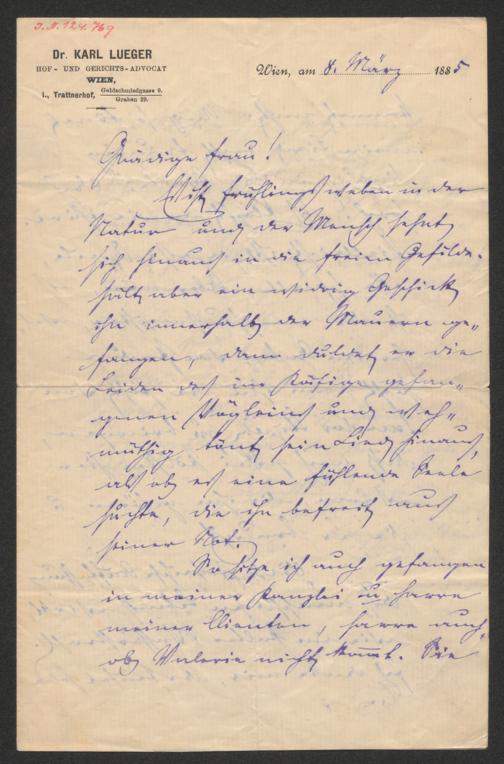 I.N. 124.769
Dr. KARL LUEGER
HOF- UND GERICHTS-ADVOCAT
WIEN,
I., Trattnerhof, Goldschmiedgasse 9.
Graben 29.
Wien, am 8. März 1885
Gnädige Frau!
Ist Frühlingsweben in der
Natur und der Mensch sehnt
sich hinaus in die freien Gefilde,
hält aber ein widrig Geschick
ihn innerhalb der Mauern ge-
fangen, dann duldet er die
Leiden des im Käfige gefan-
genen Vögleins und weh-
müthig tönt sein Lied hinaus,
als ob es eine fühlende Seele
suchte, die ihn befreit aus
seiner Not.
So sitze ich auch gefangen
in meiner Kanzlei u. harre
meiner Clienten, harre auch,
ob Valerie nicht kommt. Sie